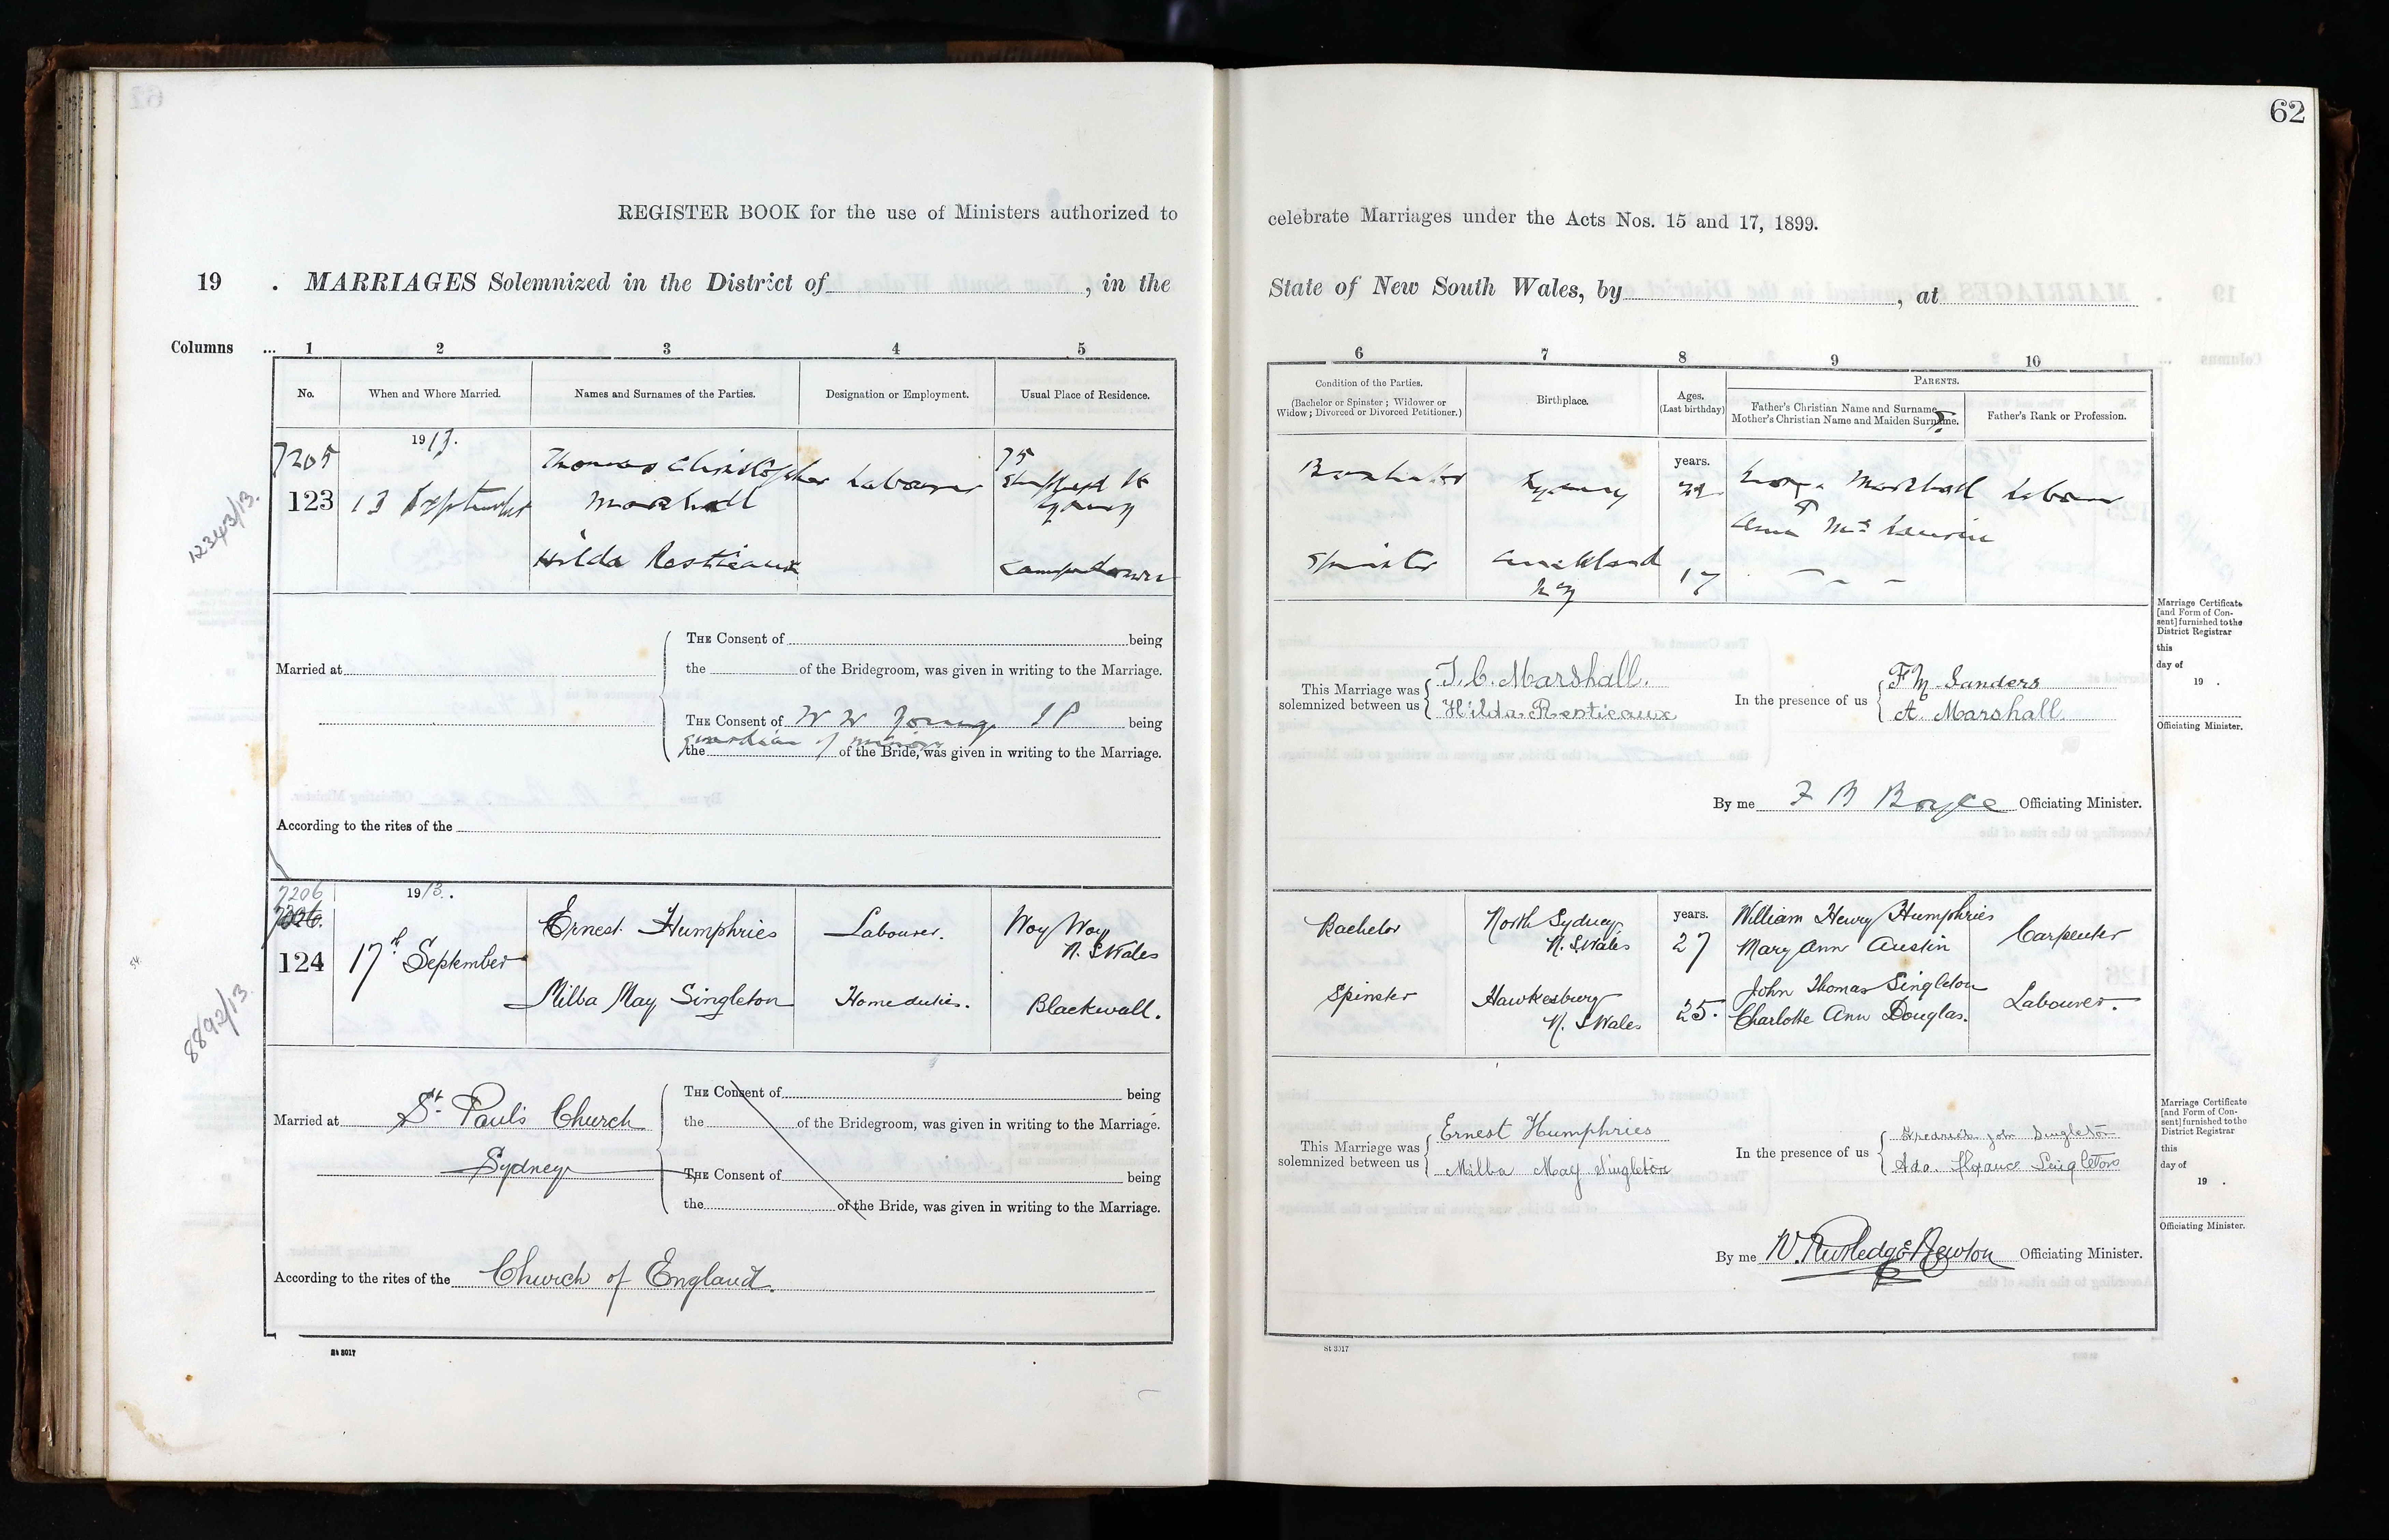 62
REGISTER BOOK for the use of Ministers authorized to celebrate Marriages under the Acts Nos. 15 and 17, 1899.
19 . MARRIAGES Solemnized in the District of , in the State of New South Wales, by , at
Columns ... 1 2 3 4 5 6 7 8 9 10
No. When and Where Married. Names and Surnames of the Parties. Designation or Employment. Usual Place of Residence.
Condition of the Parties. (Bachelor or Spinster ; Widower or Widow ; Divorced or Divorced Petitioner.) Birthplace. Ages. (Last birthday) PARENTS. Father's Christian Name and Surname. Mother's Christian Name and Maiden Surname. Father's Rank or Profession.
7205
123
12343/13.
1913.
13 September
Thomas Christopher Marshall
Labourer
75
Sydney
Bachelor
Sydney
years.
George Marshall
Labourer
Hilda Restieaux
Camperdown
Spinster
Auckland
NZ
17
Married at
THE Consent of being
the of the Bridegroom, was given in writing to the Marriage.
THE Consent of W W Young J P being
guardian of minors
the of the Bride, was given in writing to the Marriage.
According to the rites of the
This Marriage was solemnized between us
T. C. Marshall.
Hilda Restieaux
In the presence of us
F M Sanders
A. Marshall
By me F B Boyce Officiating Minister.
Marriage Certificate [and Form of Consent] furnished to the District Registrar
this
day of
19 .
Officiating Minister.
7206
124
8892/13.
1913.
17th September
Ernest Humphries
Labourer.
Woy Woy
N. S Wales
Bachelor
North Sydney
N. S Wales
years.
27
William Henry Humphries
Mary Ann Austin
Carpenter
Milba May Singleton
Home duties.
Blackwall.
Spinster
Hawkesbury
N. S Wales
25.
John Thomas Singleton
Charlotte Ann Douglas.
Labourer.
Married at St. Paul's Church
Sydney
THE Consent of being
the of the Bridegroom, was given in writing to the Marriage.
THE Consent of being
the of the Bride, was given in writing to the Marriage.
According to the rites of the Church of England.
This Marriage was solemnized between us
Ernest Humphries
Milba May Singleton
In the presence of us
Fredrick John Singleton
Ada Florance Singleton
By me W. Rutledge Newton Officiating Minister.
Marriage Certificate [and Form of Consent] furnished to the District Registrar
this
day of
19 .
Officiating Minister.
St 3017
St 3017